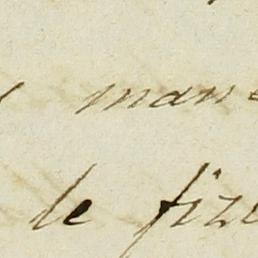 mane
le fize